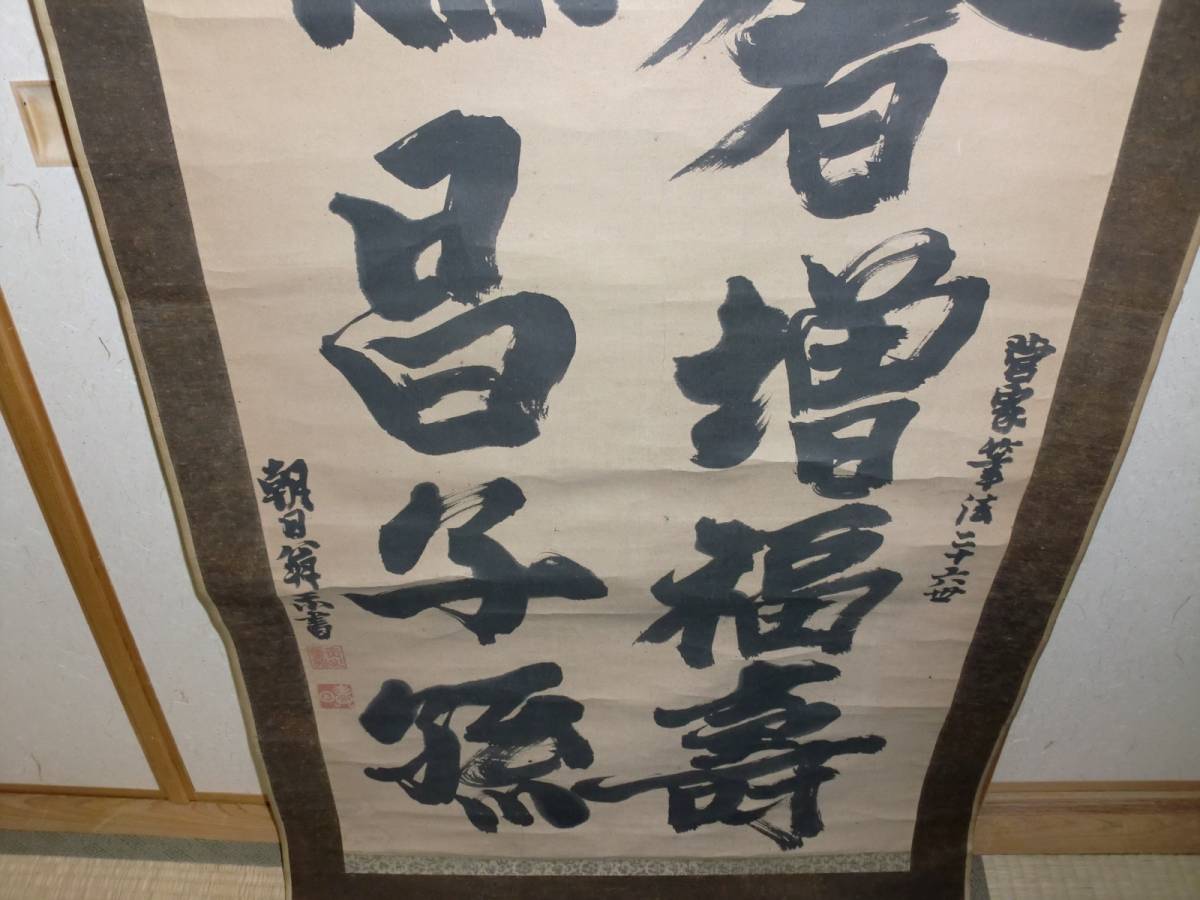 菅家筆法二十六世
春増福壽
昌子孫
朝日翁書